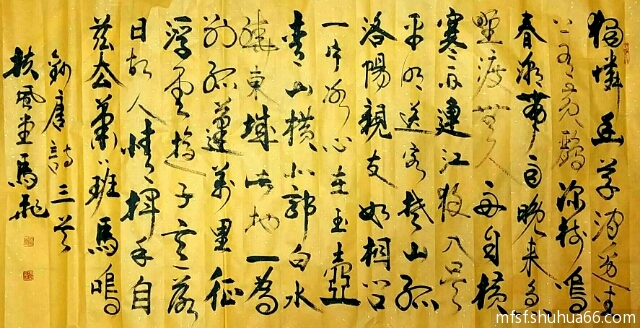 獨憐幽草澗邊生
上有黄鸝深樹鳴
春潮帶雨晚来急
野渡無人舟自横
寒雨連江夜入吴
平明送客楚山孤
洛陽親友如相问
一片冰心在玉壺
青山横北郭白水
繞東城此地一為
别孤蓬萬里征
浮雲遊子意落
日故人情揮手自
兹去蕭〻班馬鳴
録唐詩三首
扶風堂馬飛
mfsf.shuhua66.com